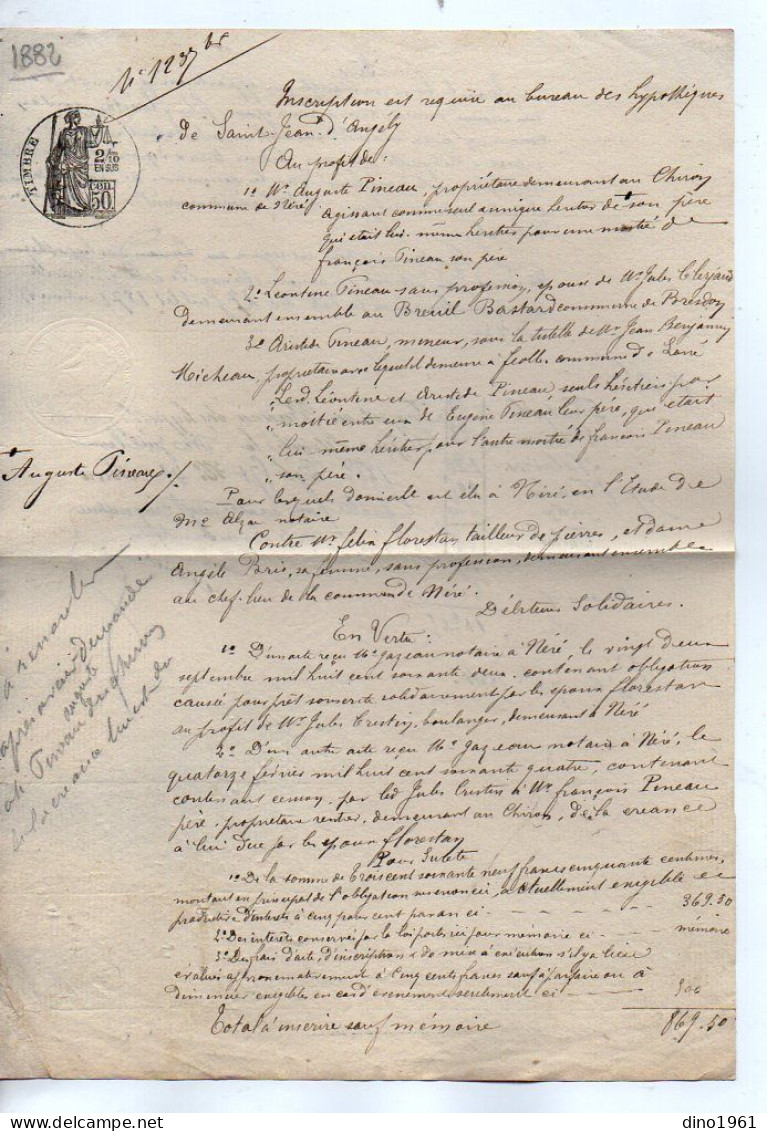 1882
N° 1237 bis
TIMBRE
2/10
EN SUS
50.
Inscription est requise au bureau des hypothèques
de Saint-Jean-d'Angély
Au profit de:
1° Mr Auguste Pineau, propriétaire demeurant au Chiron
commune de Néré
agissant comme seul et unique héritier de son père
qui était lui-même héritier pour une moitié de
françois Pineau son père
2° Léontine Pineau sans profession, épouse de Mr Jules Clerjaud
demeurant ensemble au Breuil Bastard commune de Bresdon
3° Aristide Pineau, mineur, sous la tutelle de Mr Jean Benjamin
Micheau, propriétaire avec lequel il demeure à commune de
Led. Léontine et Aristide Pineau seuls héritiers par
" moitié entre eux de Eugène Pineau leur père, qui était
" lui-même héritier pour l'autre moitié de françois Pineau
" son père.
Auguste Pineau
Pour lesquels domicile est élu à Néré, en l'Etude de
Me notaire
Contre Mr felix florestan tailleur de pierres, et dame
Angèle Brie, sa femme, sans profession, demeurant ensemble
au chef-lieu de la commune de Néré.
Débiteurs Solidaires.
à renouveler
après avoir demandé
En Vertu:
1° D'un acte reçu Me gazeau notaire à Néré, le vingt deux
septembre mil huit cent soixante deux. contenant obligation
causée pour prêt souscrite solidairement par les époux florestan
au profit de Mr Jules Crestin, boulanger, demeurant à Néré
2° D'un autre acte reçu Me gazeau notaire à Néré, le
quatorze février mil huit cent soixante quatre, contenant
contenant cession, par led Jules Crestin à Mr françois Pineau
père, propriétaire rentier, demeurant au Chiron, de la créance
à lui Due par les époux florestan
Pour Sureté
1° De la somme de trois cent soixante neuf francs cinquante centimes,
montant en principal de l'obligation susénoncée, actuellement exigible et
productive d'intérêts à cinq pour cent par an ci - - - - 369.50
2° Des intérêts conservés par la loi portés ici pour mémoire ci - - mémoire
3° Des frais d'acte, d'inscription & de mise à exécution s'il y a lieu
évalués approximativement à cinq cents francs sauf à parfaire ou à
diminuer exigibles en cas d'évènement seulement ci - - 500
Total à inscrire sauf mémoire 869.50
dino1961